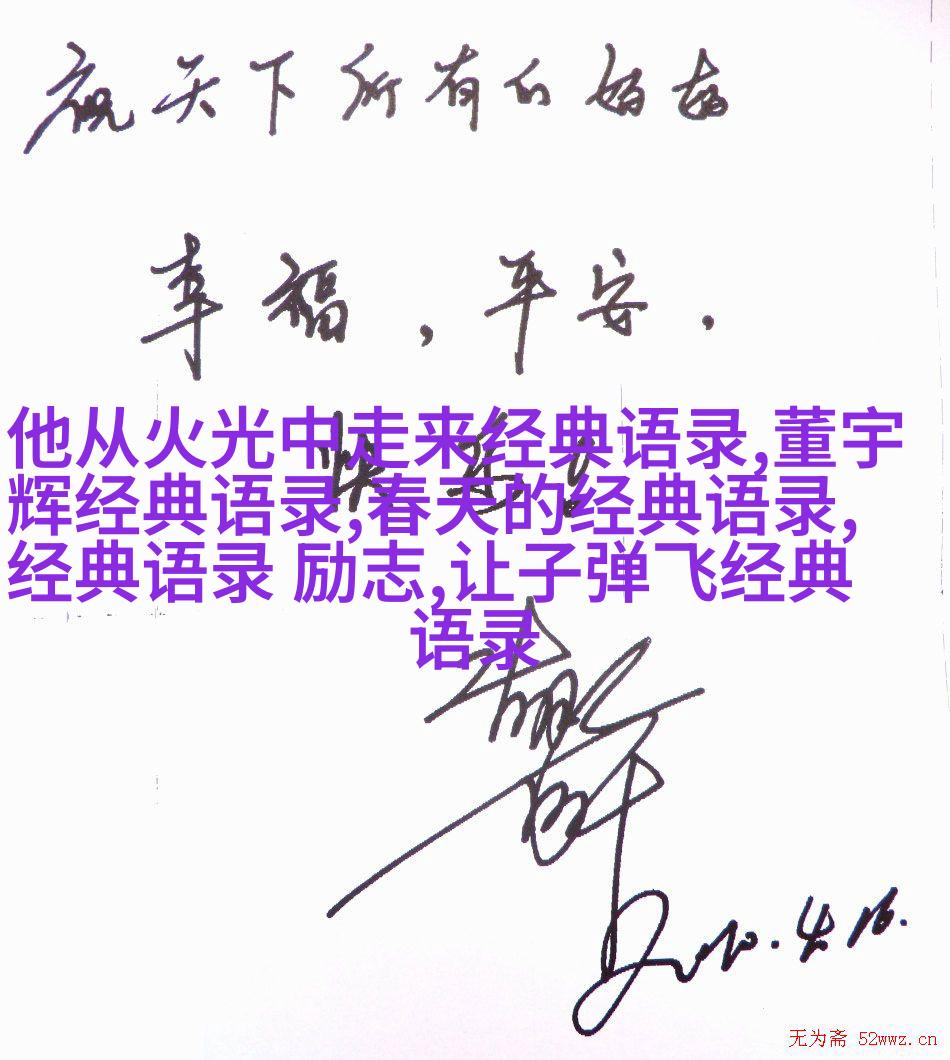 祝天下所有的妈妈
幸福，平安，
快乐！
他从火光中走来经典语录,董宇
辉经典语录,春天的经典语录,
经典语录 励志,让子弹飞经典
语录
2010.4.16.
无为斋 52wwz.cn